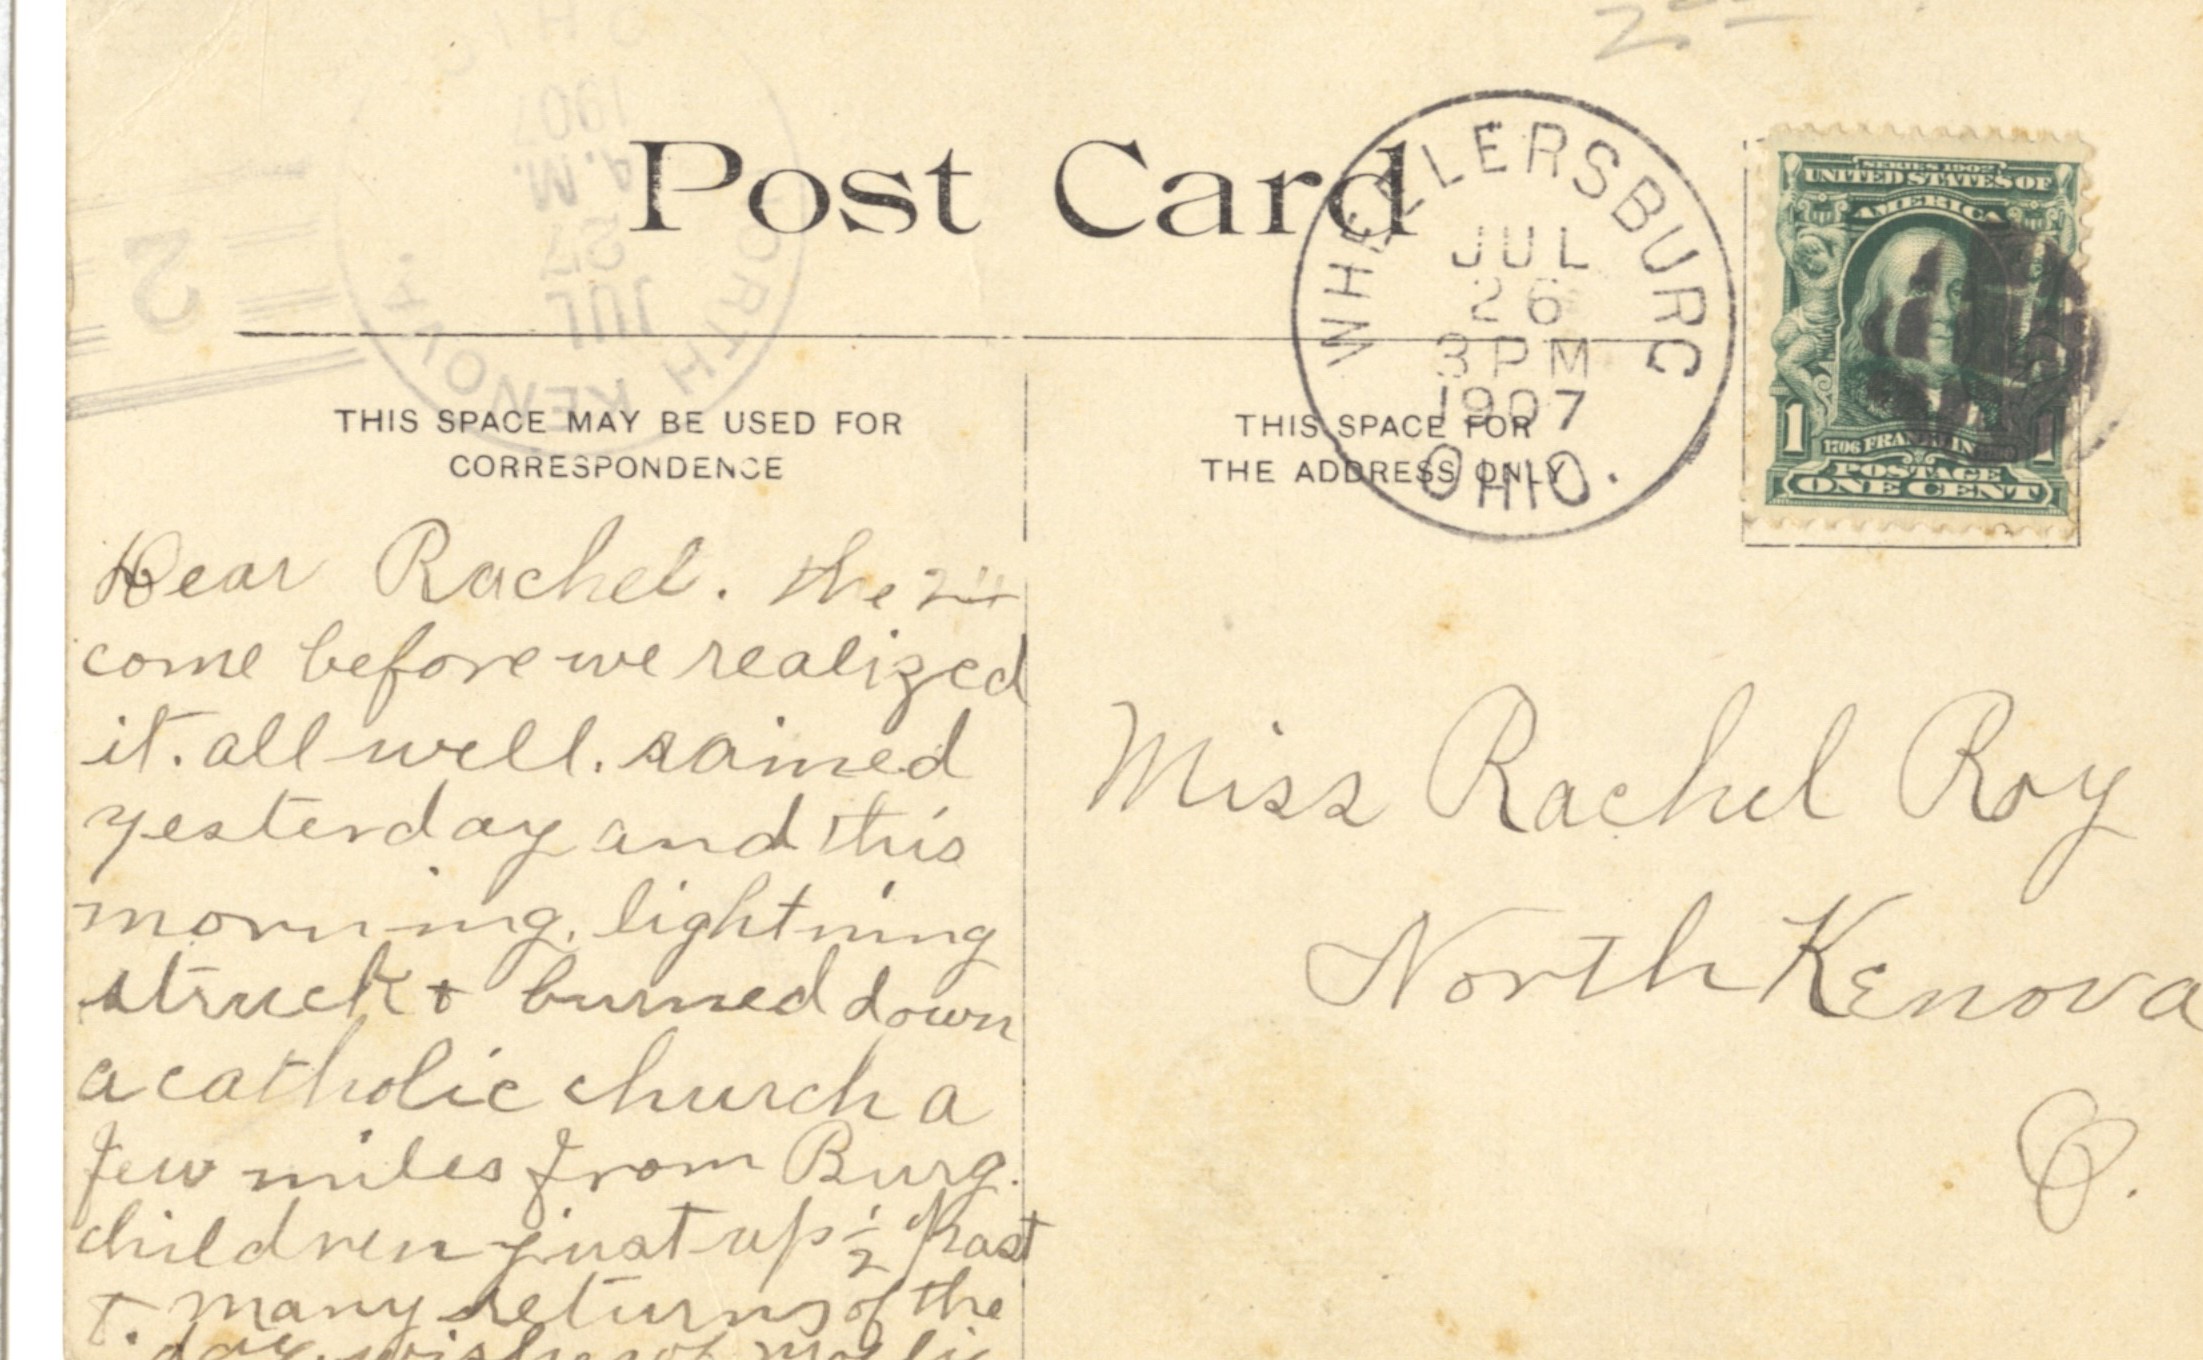 Post Card
WHEELERSBURG
JUL
26
3 PM
1907
OHIO.
SERIES 1902
UNITED STATES OF
AMERICA
1 1
1706 FRANKLIN 1790
POSTAGE
ONE CENT
OHIO
1907
A.M.
27
JUL
NORTH KENOVA.
2
THIS SPACE MAY BE USED FOR
CORRESPONDENCE
THIS SPACE FOR
THE ADDRESS ONLY
Dear Rachel. the
come before we realized
it. all well. rained
yesterday and this
morning. lightning
struck & burned down
a catholic church a
few miles from Burg.
children just up 1/2 past
7. many returns of the
day. wishes of Mollie
Miss Rachel Roy
North Kenova
O.